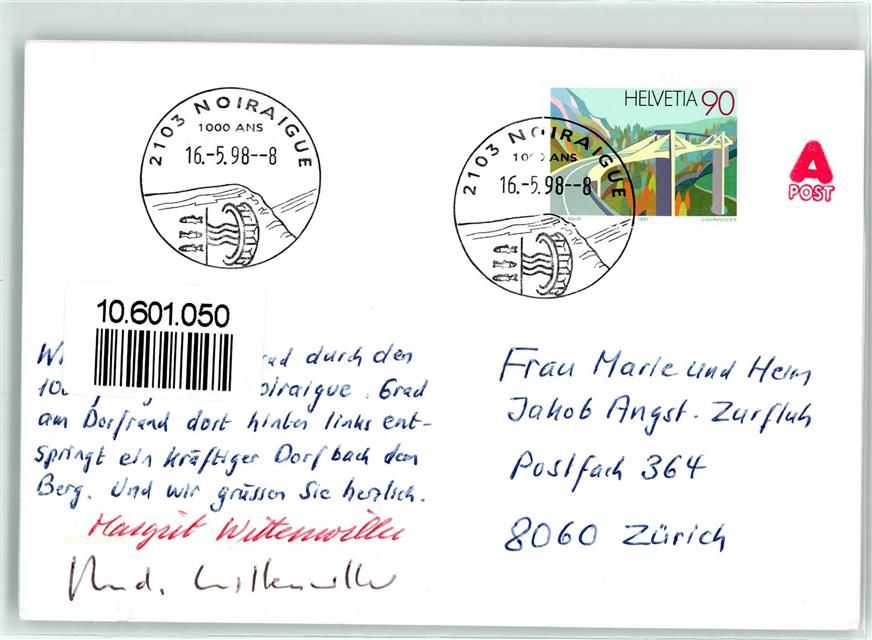 2103 NOIRAIGUE
1000 ANS
16.-5.98--8
HELVETIA 90
2103 NOIRAIGUE
1000 ANS
16.-5.98--8
1991
COURVOISIER
A
POST
10.601.050
durch den
oiraigue. Grad
am Dorfrand dort hinten links ent-
springt ein kräftiger Dorfbach dem
Berg. Und wir grüssen Sie herzlich.
Margrit Wittenwiller
Wittenwiller
Frau Marie und Herrn
Jakob Angst-Zurfluh
Postfach 364
8060 Zürich